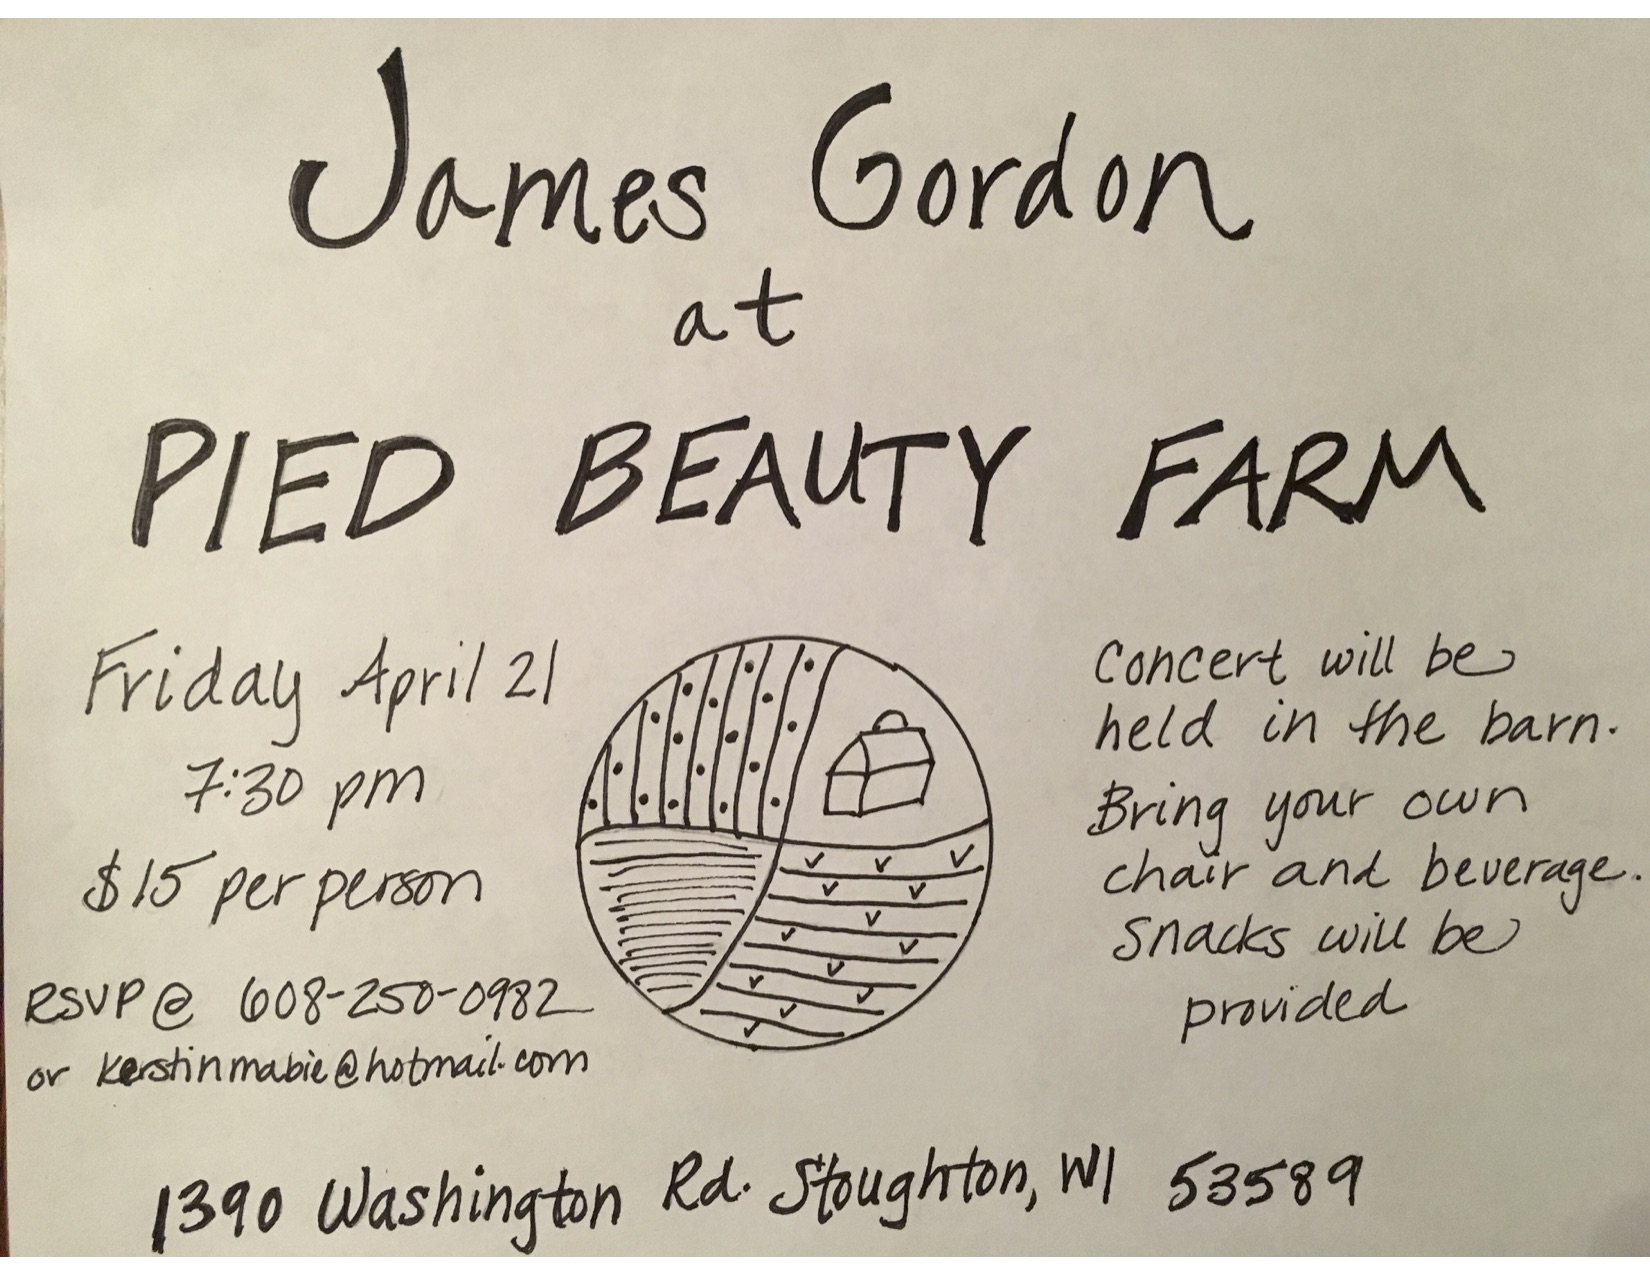 James Gordon
at
PIED BEAUTY FARM
Friday April 21
7:30 pm
$15 per person
RSVP @ 608-250-0982
or kerstinmabie@hotmail.com
Concert will be
held in the barn.
Bring your own
chair and beverage.
Snacks will be
provided
1390 Washington Rd. Stoughton, WI 53589